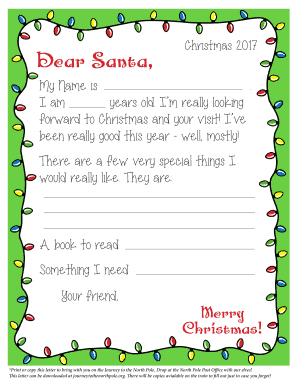 Christmas 2017
Dear Santa,
My Name is
I am ______ years old. I'm really looking
forward to Christmas and your visit! I've
been really good this year - well, mostly!
There are a few very special things I
would really like. They are:
A book to read
Something I need
Your friend,
Merry
Christmas!
*Print or copy this letter to bring with you on the Journey to the North Pole. Drop at the North Pole Post Office with our elves!
This letter can be downloaded at journeytothenorthpole.org. There will be copies available on the train to fill out just in case you forget!